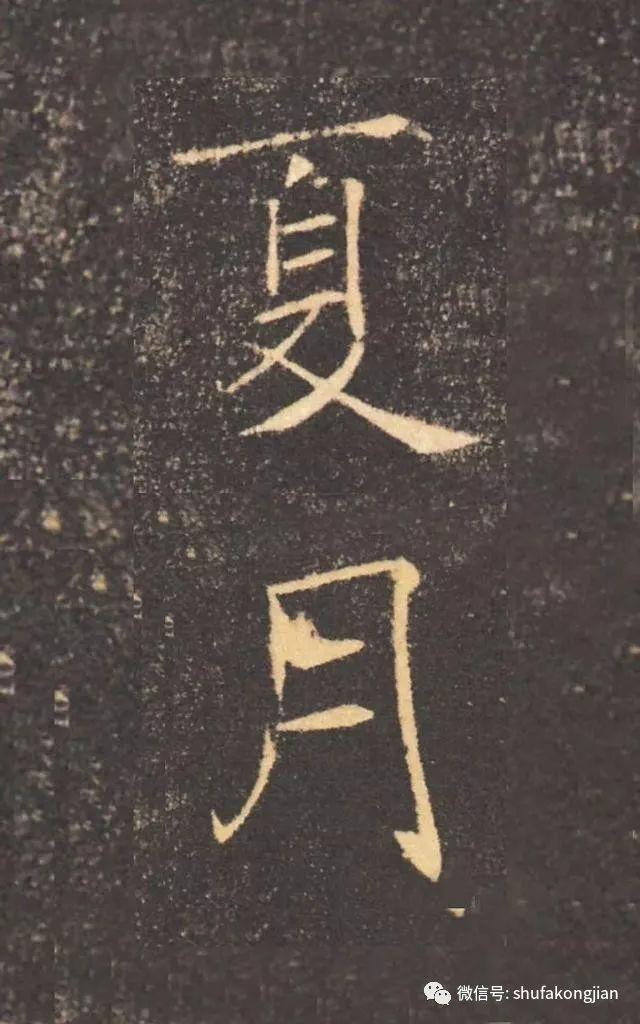 夏月
微信号: shufakongjian